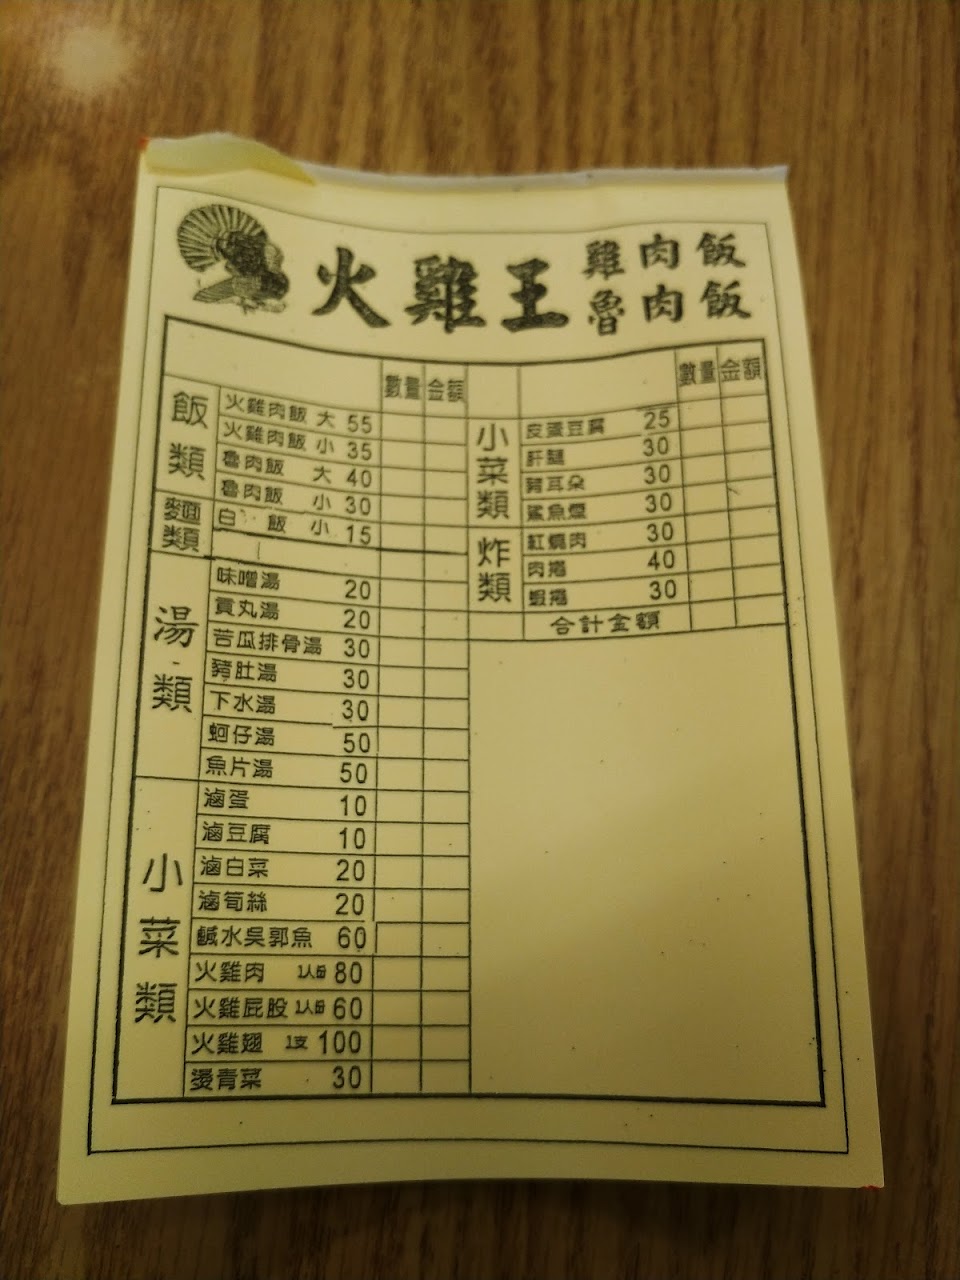 火雞王 雞肉飯
魯肉飯
數量 金額
飯類
火雞肉飯 大 55
火雞肉飯 小 35
魯肉飯 大 40
魯肉飯 小 30
白飯 小 15
麵類
湯類
味噌湯 20
貢丸湯 20
苦瓜排骨湯 30
豬肚湯 30
下水湯 30
蚵仔湯 50
魚片湯 50
小菜類
滷蛋 10
滷豆腐 10
滷白菜 20
滷筍絲 20
鹹水吳郭魚 60
火雞肉 1人份 80
火雞屁股 1人份 60
火雞翅 1支 100
燙青菜 30
數量 金額
小菜類
皮蛋豆腐 25
肝腱 30
豬耳朵 30
鯊魚煙 30
炸類
紅燒肉 30
肉捲 40
蝦捲 30
合計金額